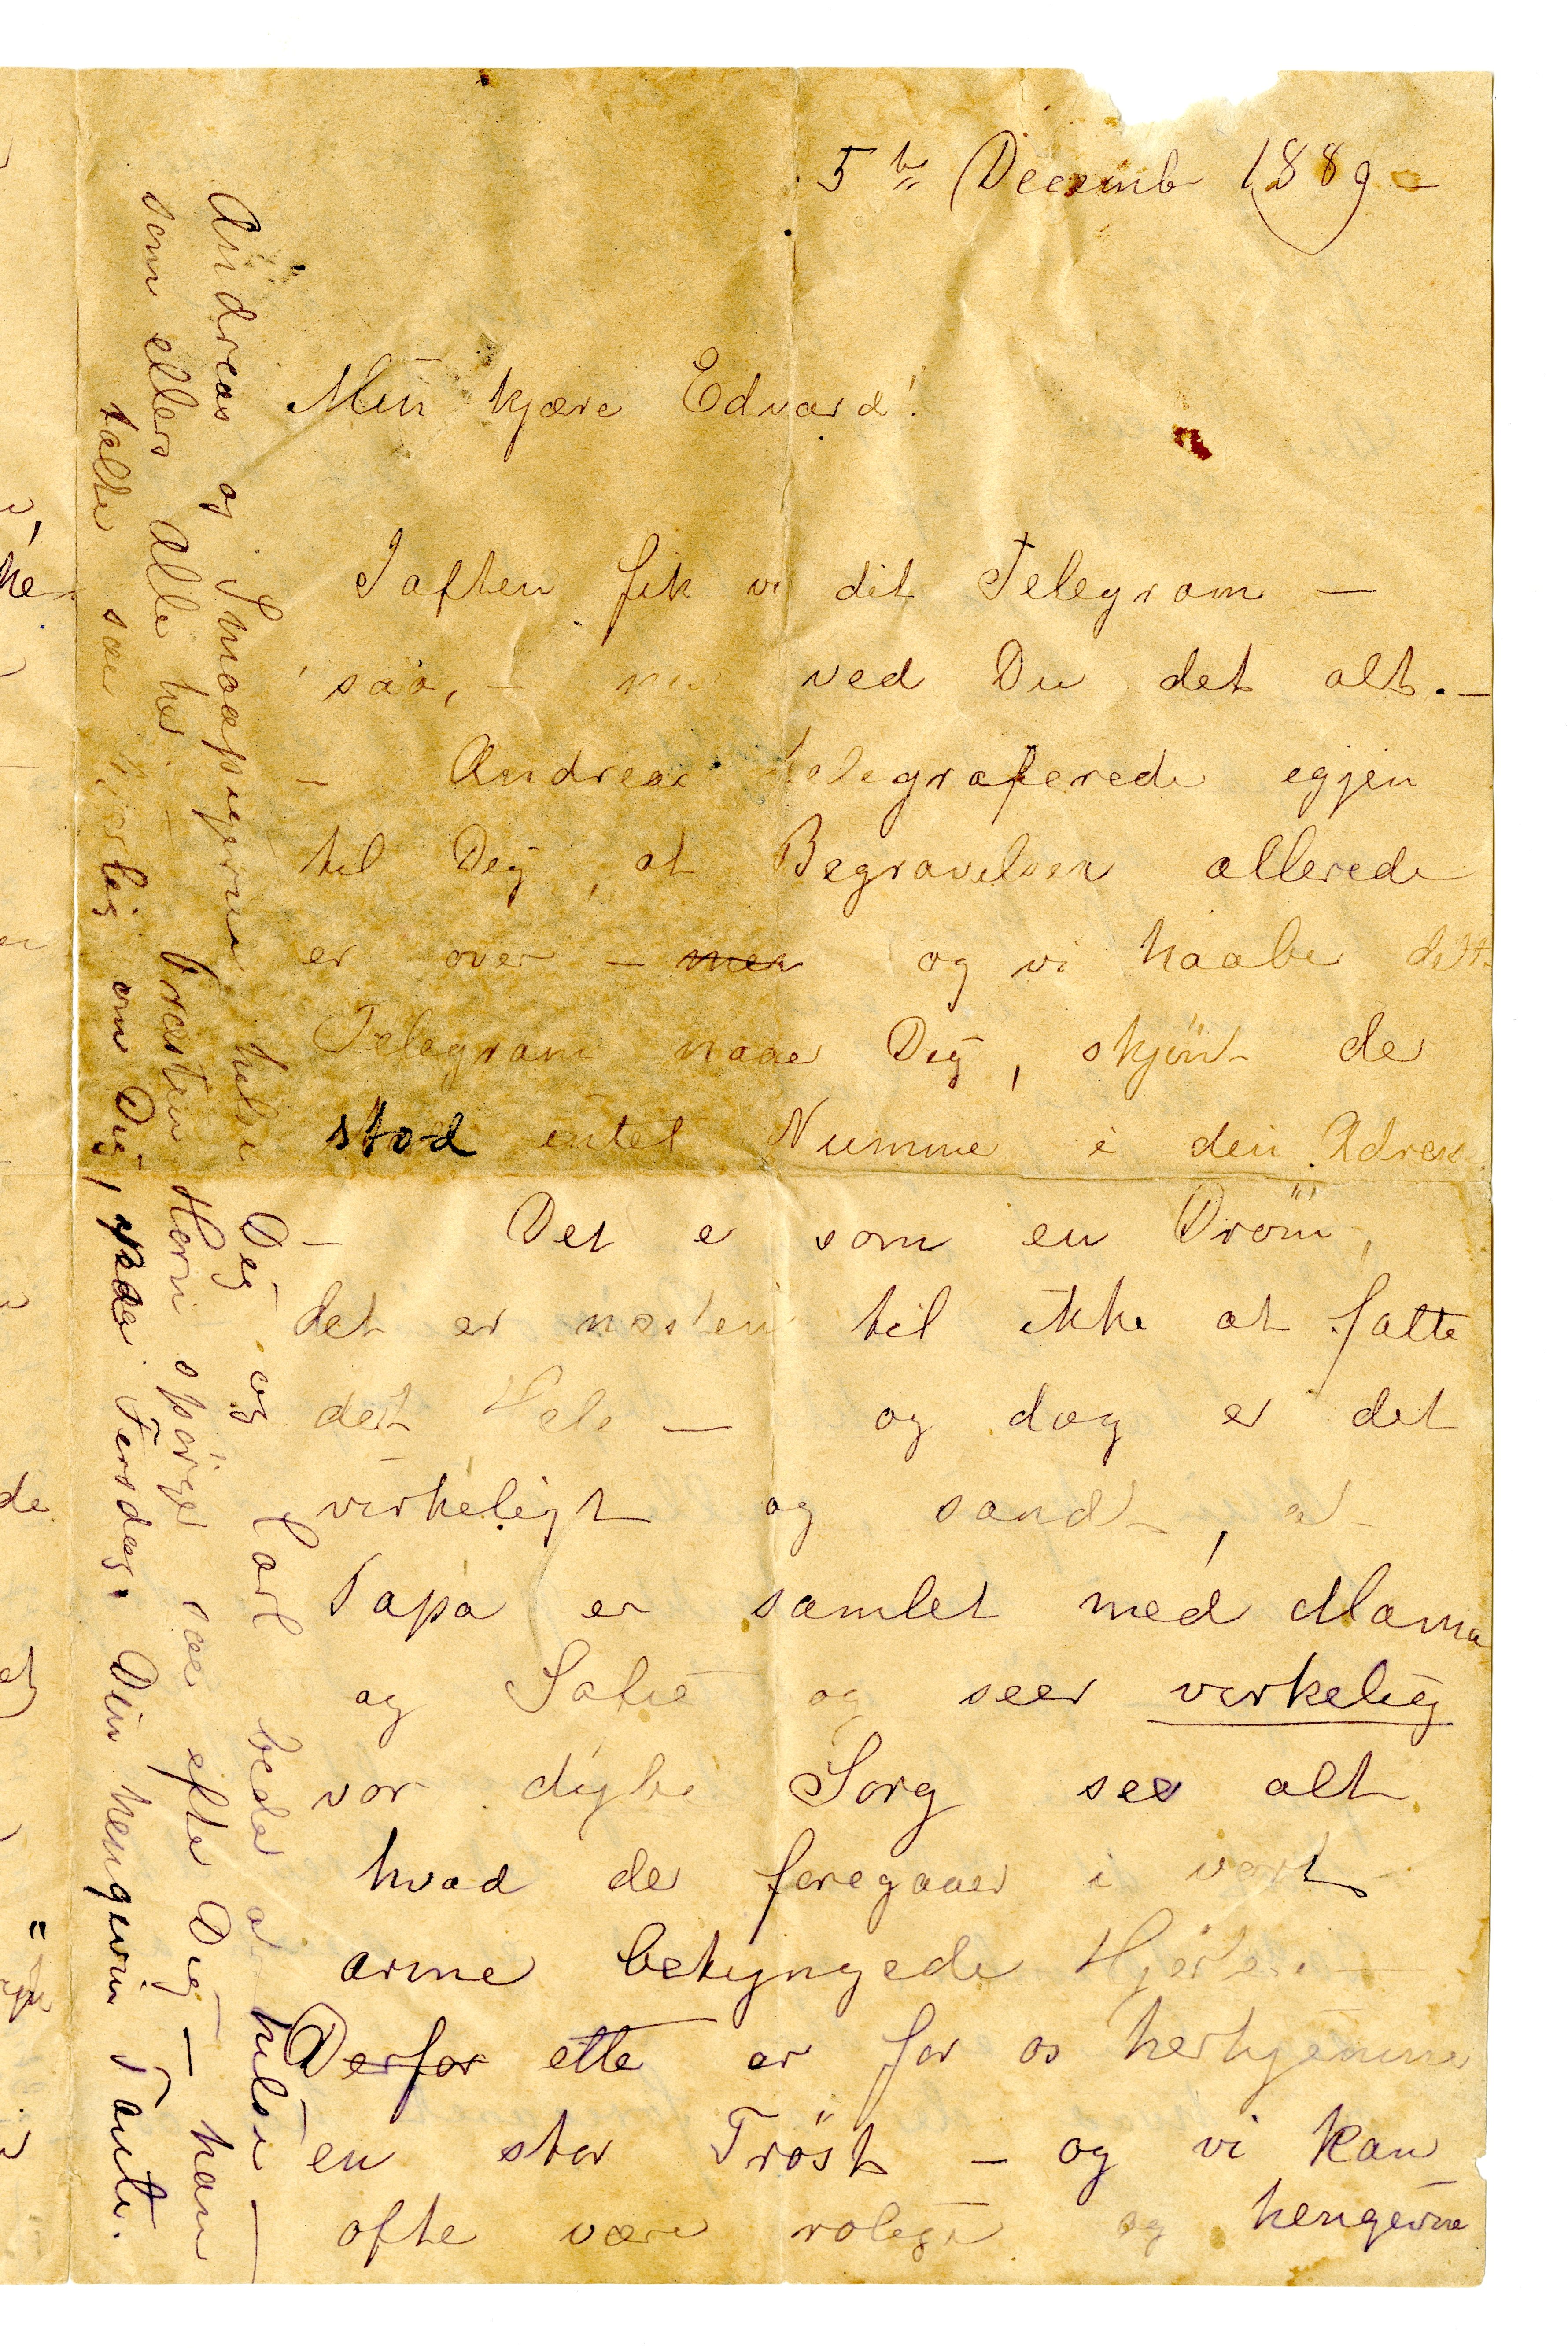 5te Decemb 1889 –
Min kjære Edvard!
Iaften fik vi dit Telegram –
saa, – nu ved Du det alt. –
– Andreas telegraferede igjen
til Dig, at Begravelsen allerede
er over – men og vi haaber dette
Telegram naaer Dig, skjønt der
stod intet Nummer i din Adresse.
– Det er som en Drøm,
det er næsten til ikke at fatte
det Hele – og dog er det
virkeligt og sandt, at
Papa er samlet med Mama
og Sofie og seer virkelig
vor dybe Sorg ser alt
hvad der foregaaer i vort
arme betyngede Hjerte. –
Derfor ette er for os herhjemme
en stor Trøst – og vi kan
ofte være rolige og hengivne
Andreas og Smaapigerne hilse Dig og Carl beder at hilse –
som ellers Alle her. – Præsten Horn spørger saa efter Dig – han
talte saa hjertelig om Dig, paa Fersdag. Din hengivne Tante.